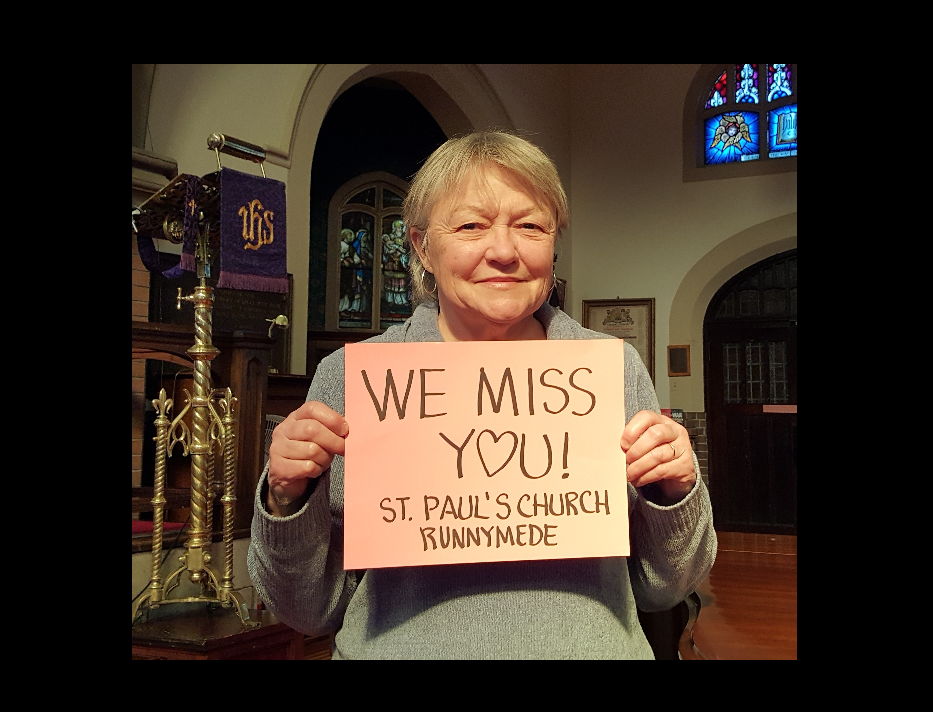 IHS
WE MISS
Y♡U!
ST. PAUL'S CHURCH
RUNNYMEDE